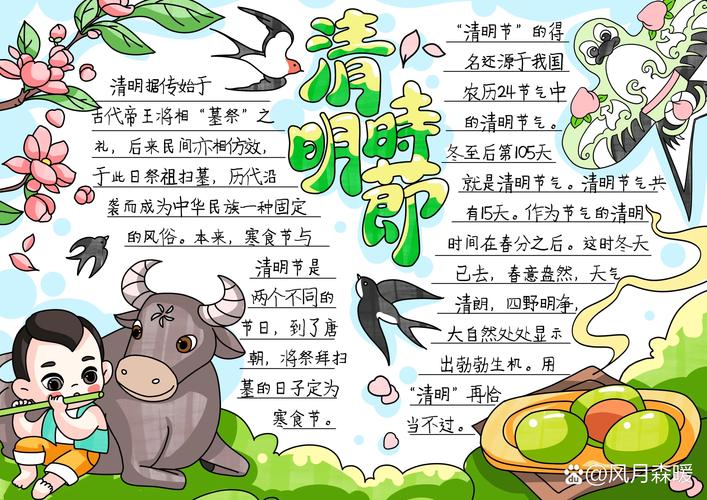 清明時節
清明据传始于
古代帝王将相“墓祭”之
礼，后来民间亦相仿效，
于此日祭祖扫墓，历代沿
袭而成为中华民族一种固定
的风俗。本来，寒食节与
清明节是
两个不同的
节日，到了唐
朝，将祭拜扫
墓的日子定为
寒食节。
“清明节”的得
名还源于我国
农历24节气中
的清明节气。
冬至后第105天
就是清明节气。清明节气共
有15天。作为节气的清明
时间在春分之后。这时冬天
已去，春意盎然，天气
清朗，四野明净，
大自然处处显示
出勃勃生机。用
“清明”再恰
当不过。
@风月森暖